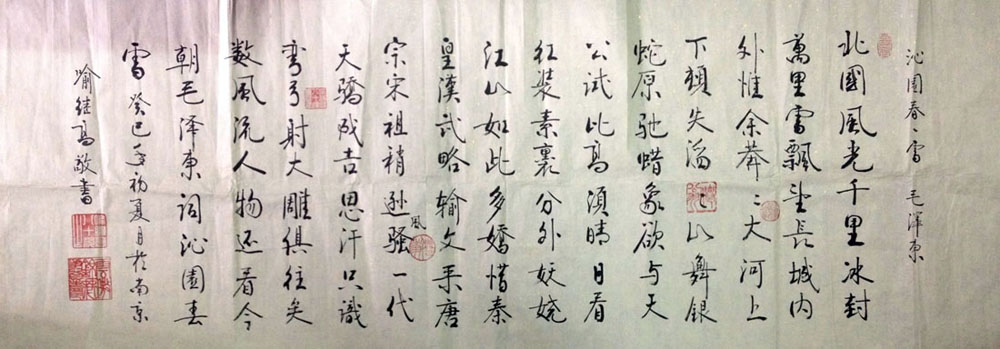 沁园春·雪 毛泽东
北國風光千里冰封
萬里雪飄望長城内
外惟余莽〻大河上
下頓失滔〻山舞銀
蛇原驰蜡象欲与天
公试比高須晴日看
红装素裹分外妖娆
江山如此多嬌惜秦
皇漢武略输文采唐
宗宋祖稍逊風骚一代
天骄成吉思汗只識
弯弓射大雕俱往矣
数風流人物还看今
朝毛泽东词沁園春
雪癸巳年初夏月於南京
喻继高敬書